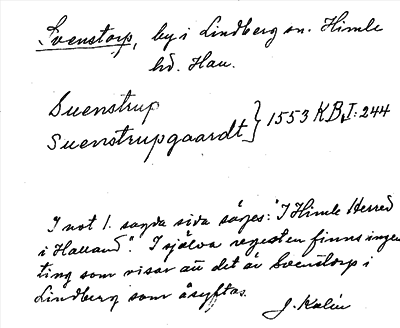 Svenstorp, by i Lindberg sn. Himle
hd. Hall.
Suenstrup
Suenstrupgaardt } 1553 KB, I: 244
I not 1. samma sida säges: "I Himle Herred
i Halland". I själva regesten finns ingen
ting som visar att det är Svenstorp i
Lindberg som åsyftas.
J. Kalén